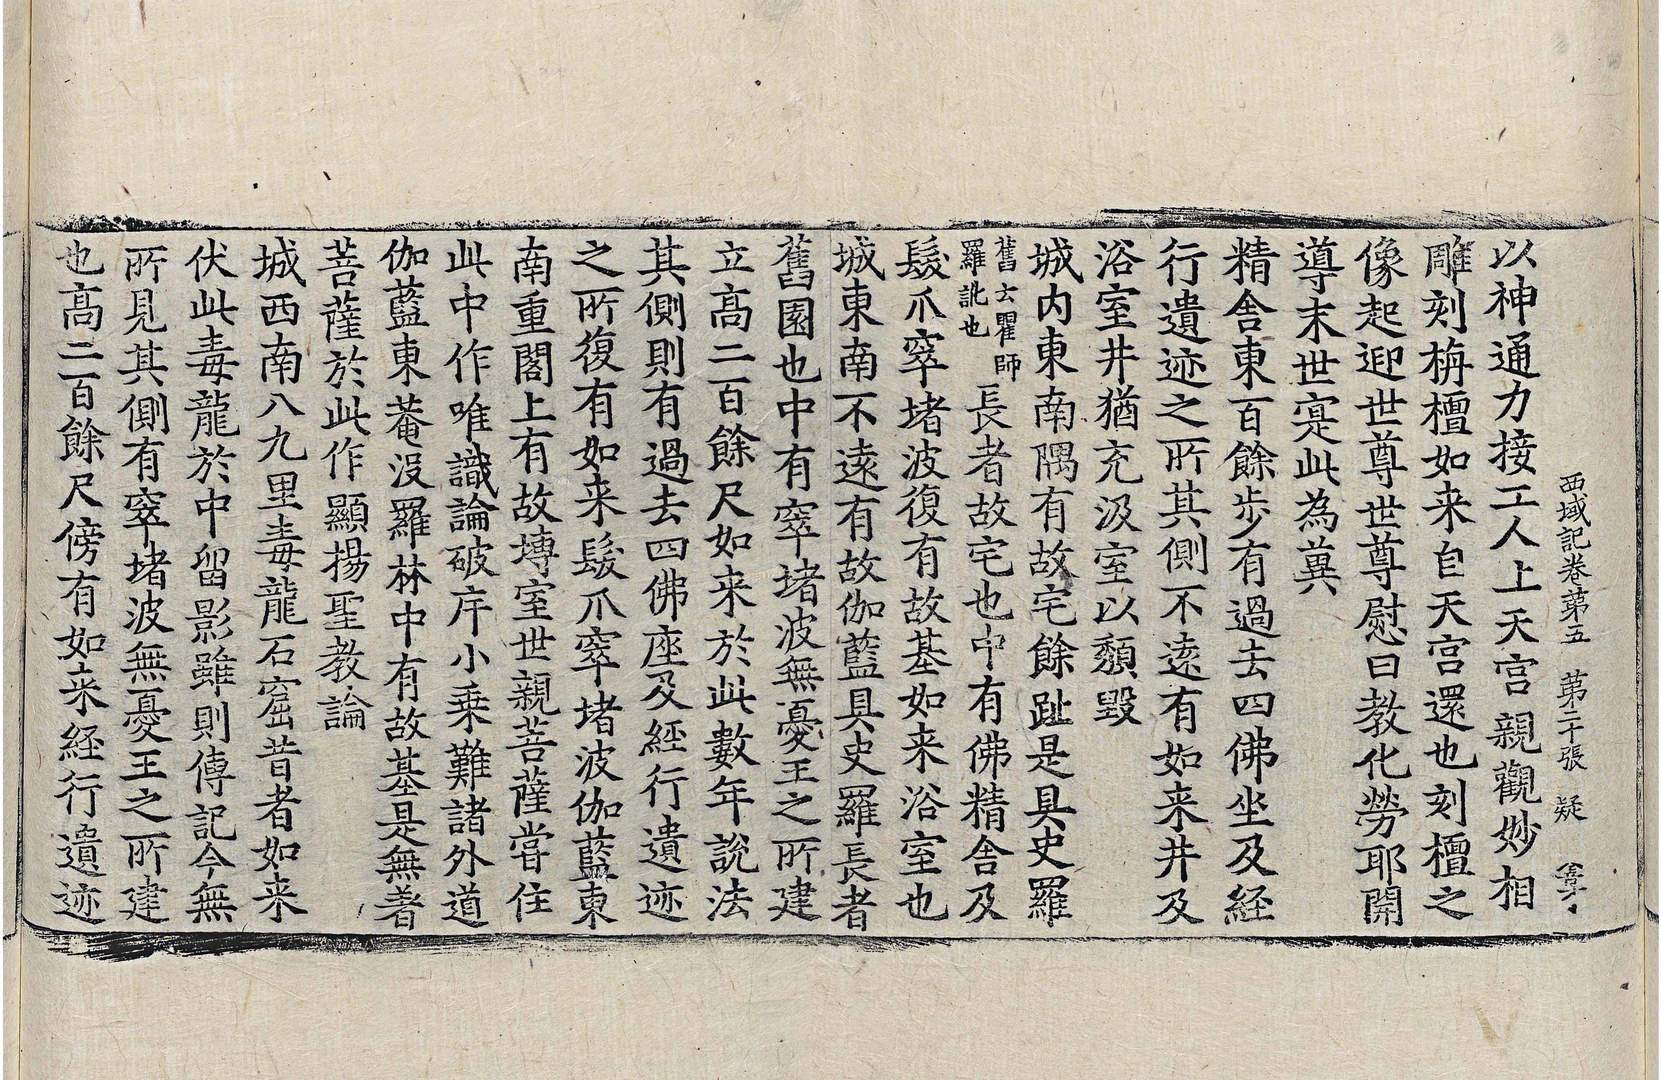 西域記卷第五 第二十張 疑
以神通力接工人上天宮親觀妙相
雕刻栴檀如来自天宮還也刻檀之
像起迎世尊世尊慰曰教化勞耶開
導末世寔此為冀
精舍東百餘步有過去四佛坐及経
行遺迹之所其側不遠有如来井及
浴室井猶充汲室以頹毀
城内東南隅有故宅餘趾是具史羅
舊云瞿師羅訛也長者故宅也中有佛精舍及
髮爪窣堵波復有故基如来浴室也
城東南不遠有故伽藍具史羅長者
舊園也中有窣堵波無憂王之所建
立高二百餘尺如来於此數年說法
其側則有過去四佛座及経行遺迹
之所復有如来髮爪窣堵波伽藍東
南重閣上有故塼室世親菩薩嘗住
此中作唯識論破斥小乗難諸外道
伽藍東菴沒羅林中有故基是無著
菩薩於此作顯揚聖教論
城西南八九里毒龍石窟昔者如来
伏此毒龍於中留影雖則傳記今無
所見其側有窣堵波無憂王之所建
也高二百餘尺傍有如来経行遺迹